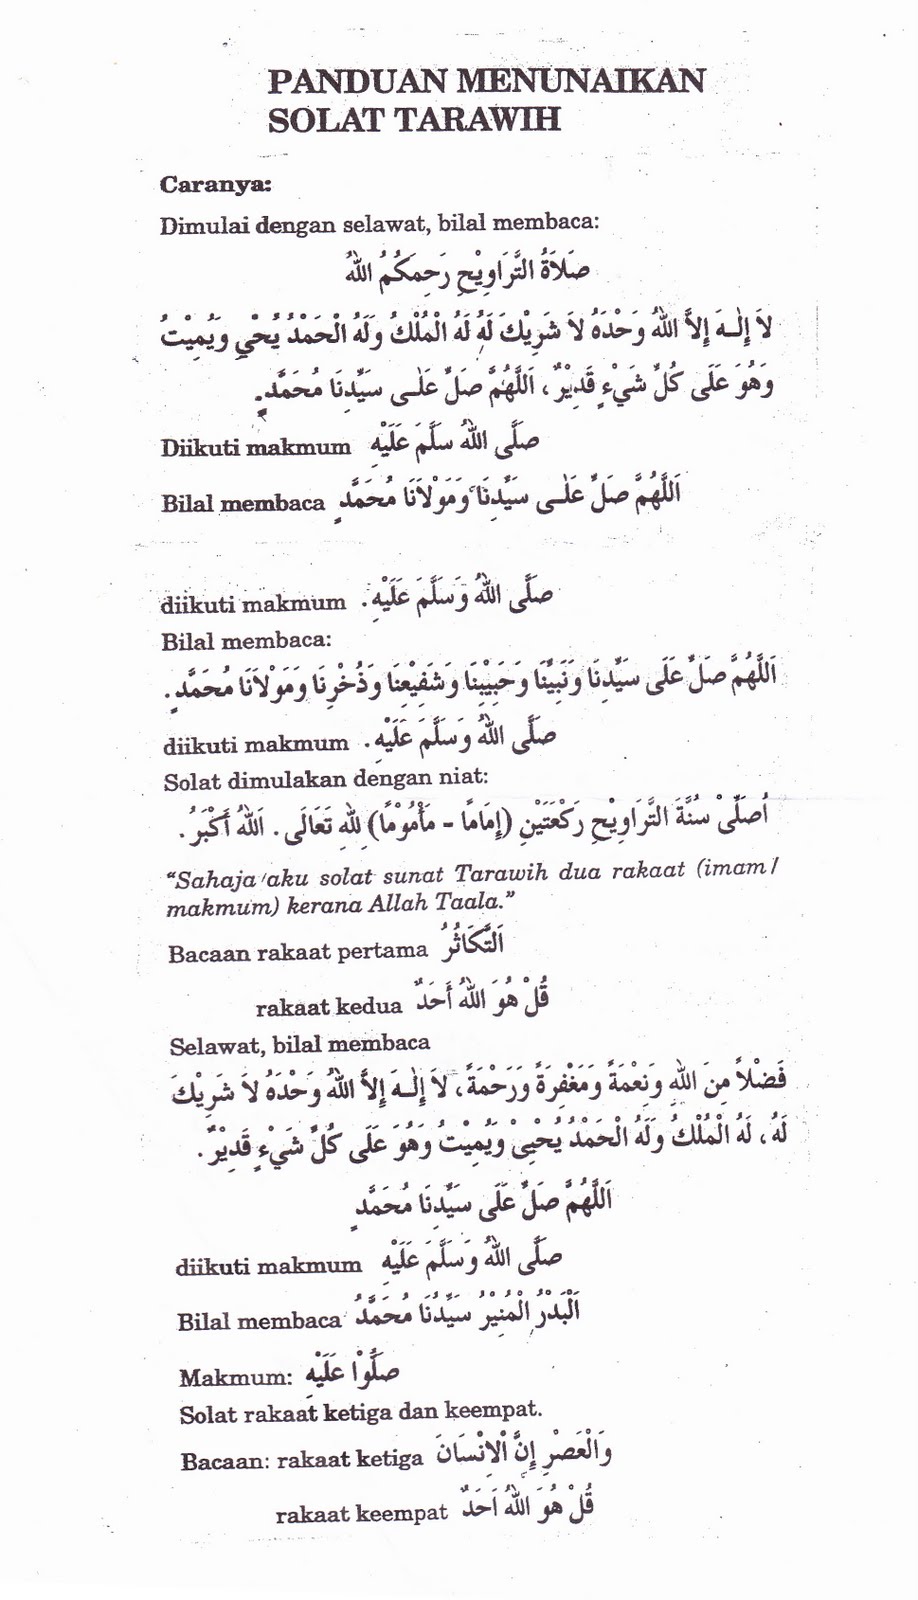 PANDUAN MENUNAIKAN
SOLAT TARAWIH
Caranya:
Dimulai dengan selawat, bilal membaca:
صَلَاةُ التَّرَاوِيْحِ رَحِمَكُمُ اللهُ
لاَ إِلٰـهَ إِلاَّ اللهُ وَحْدَهُ لاَ شَرِيْكَ لَهُ لَهُ الْمُلْكُ وَلَهُ الْحَمْدُ يُحْيِ وَيُمِيْتُ
وَهُوَ عَلَى كُلِّ شَيْءٍ قَدِيْرٌ، اَللَّهُمَّ صَلِّ عَلٰـى سَيِّدِنَا مُحَمَّدٍ.
Diikuti makmum صَلَّى اللهُ سَلَّمَ عَلَيْهِ
Bilal membaca اَللَّهُمَّ صَلِّ عَلٰـى سَيِّدِنَا وَمَوْلاَنَا مُحَمَّدٍ
diikuti makmum صَلَّى اللهُ وَسَلَّمَ عَلَيْهِ.
Bilal membaca:
اَللَّهُمَّ صَلِّ عَلَى سَيِّدِنَا وَنَبِيِّنَا وَحَبِيْبِنَا وَشَفِيْعِنَا وَذُخْرِنَا وَمَوْلاَنَا مُحَمَّدٍ.
diikuti makmum صَلَّى اللهُ وَسَلَّمَ عَلَيْهِ.
Solat dimulakan dengan niat:
اُصَلِّىْ سُنَّةَ التَّرَاوِيْحِ رَكْعَتَيْنِ (إِمَامًا - مَأْمُوْمًا) لِلهِ تَعَالَى. اَللهُ أَكْبَرُ.
“Sahaja aku solat sunat Tarawih dua rakaat (imam/
makmum) kerana Allah Taala.”
Bacaan rakaat pertama اَلتَّكَاثُرُ
rakaat kedua قُلْ هُوَ اللهُ أَحَدٌ
Selawat, bilal membaca
فَضْلاً مِنَ اللهِ وَنِعْمَةً وَمَغْفِرَةً وَرَحْمَةً، لاَ إِلٰـهَ إِلاَّ اللهُ وَحْدَهُ لاَ شَرِيْكَ
لَهُ، لَهُ الْمُلْكُ وَلَهُ الْحَمْدُ يُحْيِىْ وَيُمِيْتُ وَهُوَ عَلَى كُلِّ شَيْءٍ قَدِيْرٌ.
اَللَّهُمَّ صَلِّ عَلَى سَيِّدِنَا مُحَمَّدٍ
diikuti makmum صَلَّى اللهُ وَسَلَّمَ عَلَيْهِ
Bilal membaca اَلْبَدْرُ الْمُنِيْرُ سَيِّدُنَا مُحَمَّدُ
Makmum: صَلُّوْا عَلَيْهِ
Solat rakaat ketiga dan keempat.
Bacaan: rakaat ketiga وَالْعَصْرِ إِنَّ اْلاِنْسَانَ
rakaat keempat قُلْ هُوَ اللهُ اَحَدٌ